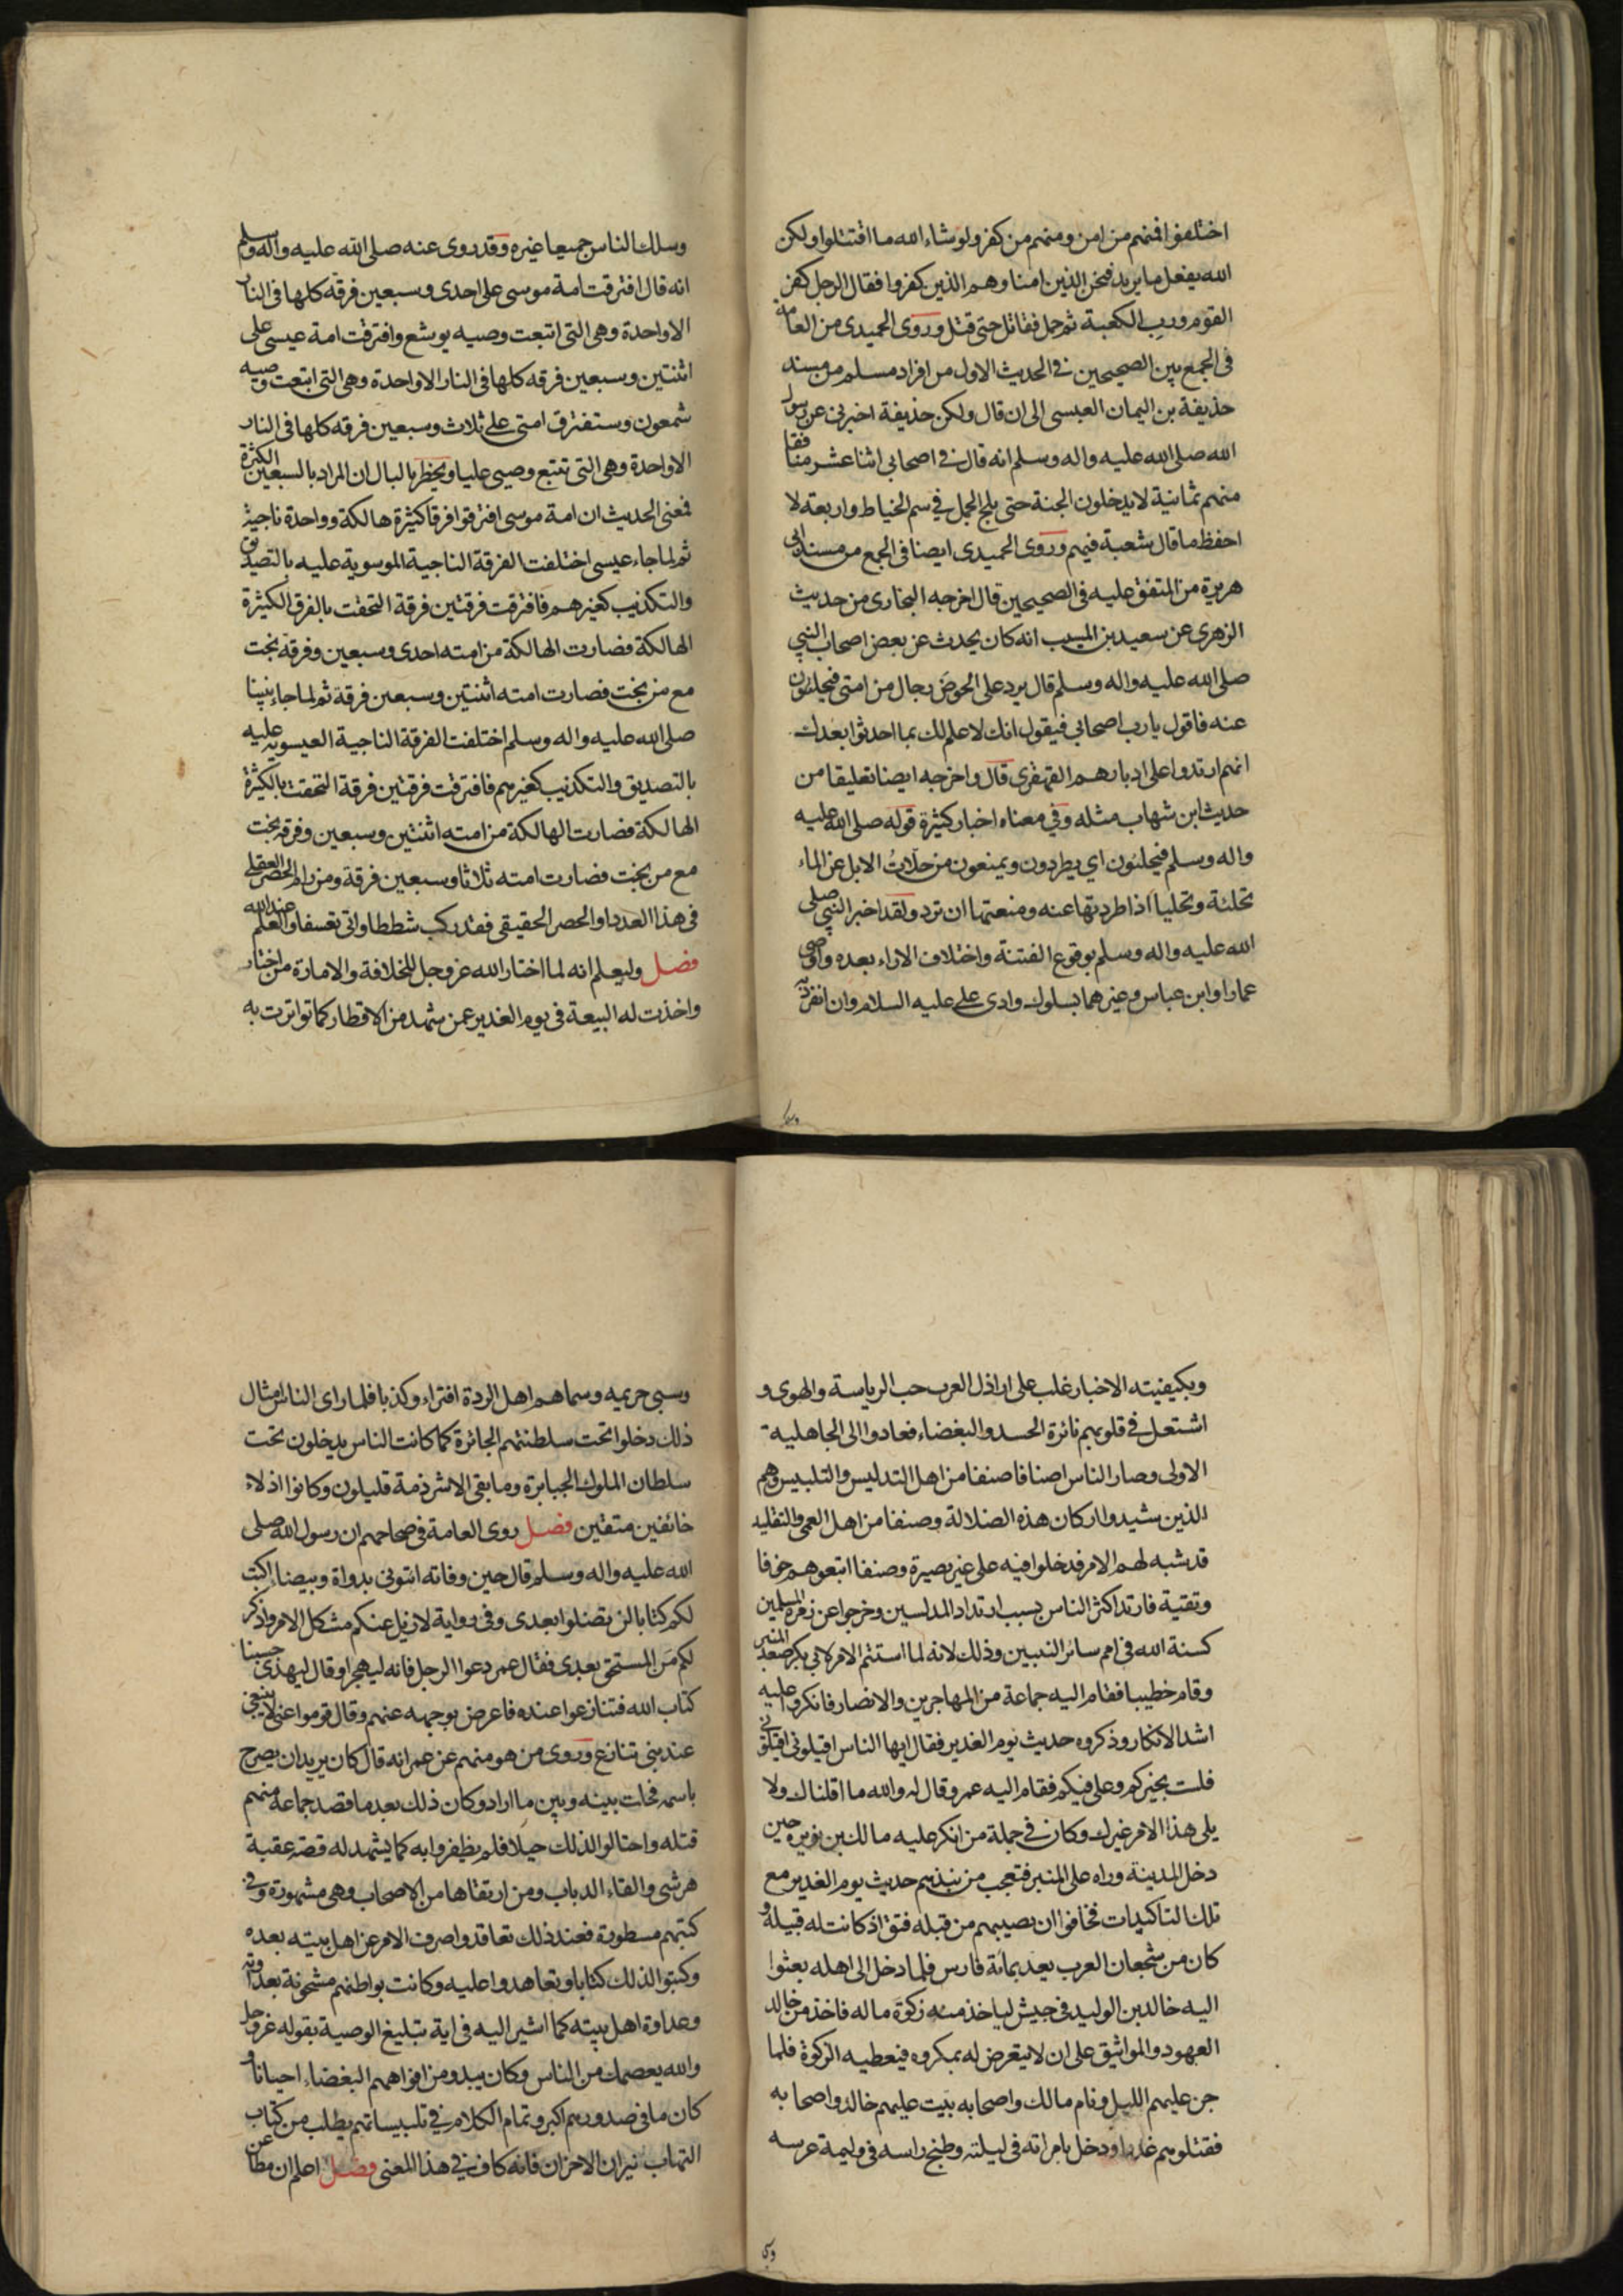 اختلفوا فمنهم من امن ومنهم من كفر ولو شاء الله ما اقتتلوا ولكن
الله يفعل ما يريد فنحن الذين امنا وهم الذين كفروا فقال الرجل كفر
القوم ورب الكعبة ثم حمل فقاتل حتى قتل وروى الحميدى من العامة
فى الجمع بين الصحيحين فى الحديث الاول من افراد مسلم من مسند
حذيفة بن اليمان العبسى الى ان قال ولكن حذيفة اخبرنى عن رسول
الله صلى الله عليه واله وسلم انه قال فى اصحابى اثنا عشر منافقا
منهم ثمانية لا يدخلون الجنة حتى يلج الجمل فى سم الخياط واربعة لا
احفظ ما قال شعبة فيهم وروى الحميدى ايضا فى الجمع من مسند ابى
هريرة من المتفق عليه فى الصحيحين قال اخرجه البخارى من حديث
الزهرى عن سعيد بن المسيب انه كان يحدث عن بعض اصحاب النبى
صلى الله عليه واله وسلم قال يرد على الحوض رجال من امتى فيحلئون
عنه فاقول يا رب اصحابى فيقول انك لا علم لك بما احدثوا بعدك
انهم ارتدوا على ادبارهم القهقرى قال واخرجه ايضا تعليقا من
حديث ابن شهاب مثله وفى معناه اخبار كثيرة قوله صلى الله عليه
واله وسلم فيحلئون اي يطردون ويمنعون من حلات الابل عن الماء
تحلئة وتحليا اذا طردتها عنه ومنعتها ان ترد ولقد اخبر النبى صلى
الله عليه واله وسلم بوقوع الفتنة واختلاف الاراء بعده واوصى
عمارا وابن عباس وغيرهما بسلوك وادى على عليه السلام وان انفرد به
وسلك
وسلك الناس جميعا غيره وقد روى عنه صلى الله عليه واله وسلم
انه قال افترقت امة موسى على احدى وسبعين فرقة كلها فى النار
الا واحدة وهى التى اتبعت وصيه يوشع وافترقت امة عيسى على
اثنتين وسبعين فرقه كلها فى النار الا واحدة وهى التى اتبعت وصيه
شمعون وستفترق امتى على ثلاث وسبعين فرقه كلها فى النار
الا واحدة وهى التى تتبع وصيى عليا ويخطر بالبال ان المراد بالسبعين الكثرة
فمعنى الحديث ان امة موسى افترقوا فرقا كثيرة هالكة وواحدة ناجية
ثم لما جاء عيسى اختلفت الفرقة الناجية الموسوية عليه بالتصديق
والتكذيب كغيرهم فافترقت فرقتين فرقة التحقت بالفرق الكثيرة
الهالكة فصارت الهالكة من امته احدى وسبعين وفرقة نجت
مع من نجت فصارت امته اثنتين وسبعين فرقة ثم لما جاء نبينا
صلى الله عليه واله وسلم اختلفت الفرقة الناجية العيسوية عليه
بالتصديق والتكذيب كغيرهم فافترقت فرقتين فرقة التحقت بالكثيرة
الهالكة فصارت الهالكة من امته اثنتين وسبعين وفرقه نجت
مع من نجت فصارت امته ثلاثا وسبعين فرقة ومن رام الحصر العقلى
فى هذا العدد او الحصر الحقيقى فقد ركب شططا واتى تعسفا والعلم عند الله
فصل وليعلم انه لما اختار الله عز وجل للخلافة والامارة من اختار
واخذت له البيعة فى يوم الغدير عمن شهد من الاقطار كما تواترت به
وبكيفيته الاخبار غلب على اراذل العرب حب الرياسة والهوى و
اشتعل فى قلوبهم نائرة الحسد والبغضاء فعادوا الى الجاهلية
الاولى وصار الناس اصنافا صنفا من اهل التدليس والتلبيس وهم
الذين شيدوا اركان هذه الضلالة وصنفا من اهل العمى والتقليد
قد شبه لهم الامر فدخلوا فيه على غير بصيرة وصنفا اتبعوهم خوفا
وتقية فارتد اكثر الناس بسبب ارتداد المدلسين وخرجوا عن زمرة المسلمين
كسنة الله فى امم سائر النبيين وذلك لانه لما استتم الامر لابى بكر صعد المنبر
وقام خطيبا فقام اليه جماعة من المهاجرين والانصار فانكروا عليه
اشد الانكار وذكروه حديث يوم الغدير فقال ايها الناس اقيلونى اقيلونى
فلست بخيركم وعلى فيكم فقام اليه عمر وقال له والله ما اقلناك ولا
يلى هذا الامر غيرك وكان فى جملة من انكر عليه مالك بن نويره حين
دخل المدينة وراه على المنبر فتعجب من نبذهم حديث يوم الغدير مع
تلك التاكيدات فخافوا ان يصيبهم من قبله فتق اذ كانت له قبيلة و
كان من شجعان العرب يعد بمائة فارس فلما دخل الى اهله بعثوا
اليه خالد بن الوليد فى جيش لياخذ منه زكوة ماله فاخذ من خالد
العهود والمواثيق على ان لا يتعرض له بمكروه فيعطيه الزكوة فلما
جن عليهم الليل ونام مالك واصحابه بيت عليهم خالد واصحابه
فقتلوهم غدرا ودخل بامراته فى ليلته وطبخ راسه فى وليمة عرسه
وسبى
وسبى حريمه وسماهم اهل الردة افتراء وكذبا فلما راى الناس امثال
ذلك دخلوا تحت سلطنتهم الجائرة كما كانت الناس يدخلون تحت
سلطان الملوك الجبابرة وما بقى الا شرذمة قليلون وكانوا اذلاء
خائفين متقين فصل روى العامة فى صحاحهم ان رسول الله صلى
الله عليه واله وسلم قال حين وفاته ائتونى بدواة وبيضاء اكتب
لكم كتابا لن تضلوا بعدى وفى رواية لازيل عنكم مشكل الامر واذكر
لكم من المستحق بعدى فقال عمر دعوا الرجل فانه ليهجر او قال ليهذى حسبنا
كتاب الله فتنازعوا عنده فاعرض بوجهه عنهم وقال قوموا عنى لا ينبغى
عند نبى تنازع وروى من هو منهم عن عمر انه قال كان يريد ان يصرح
باسمه فحلت بينه وبين ما اراد وكان ذلك بعد ما قصد جماعة منهم
قتله واحتالوا لذلك حيلا فلم يظفروا به كما يشهد له قصة عقبة
هرشى والقاء الدباب ومن ارتقاها من الاصحاب وهى مشهورة وفى
كتبهم مسطورة فعند ذلك تعاقدوا صرف الامر عن اهل بيته بعده
وكتبوا لذلك كتابا وتعاهدوا عليه وكانت بواطنهم مشحونة بعداوته
وعداوة اهل بيته كما اشير اليه فى اية تبليغ الوصية بقوله عز وجل
والله يعصمك من الناس وكان يبدو من افواههم البغضاء احيانا و
كان ما فى صدورهم اكبر وتمام الكلام فى تلبيساتهم يطلب من كتاب
التهاب نيران الاحزان فانه كاف فى هذا المعنى فصل اعلم ان مطاعن